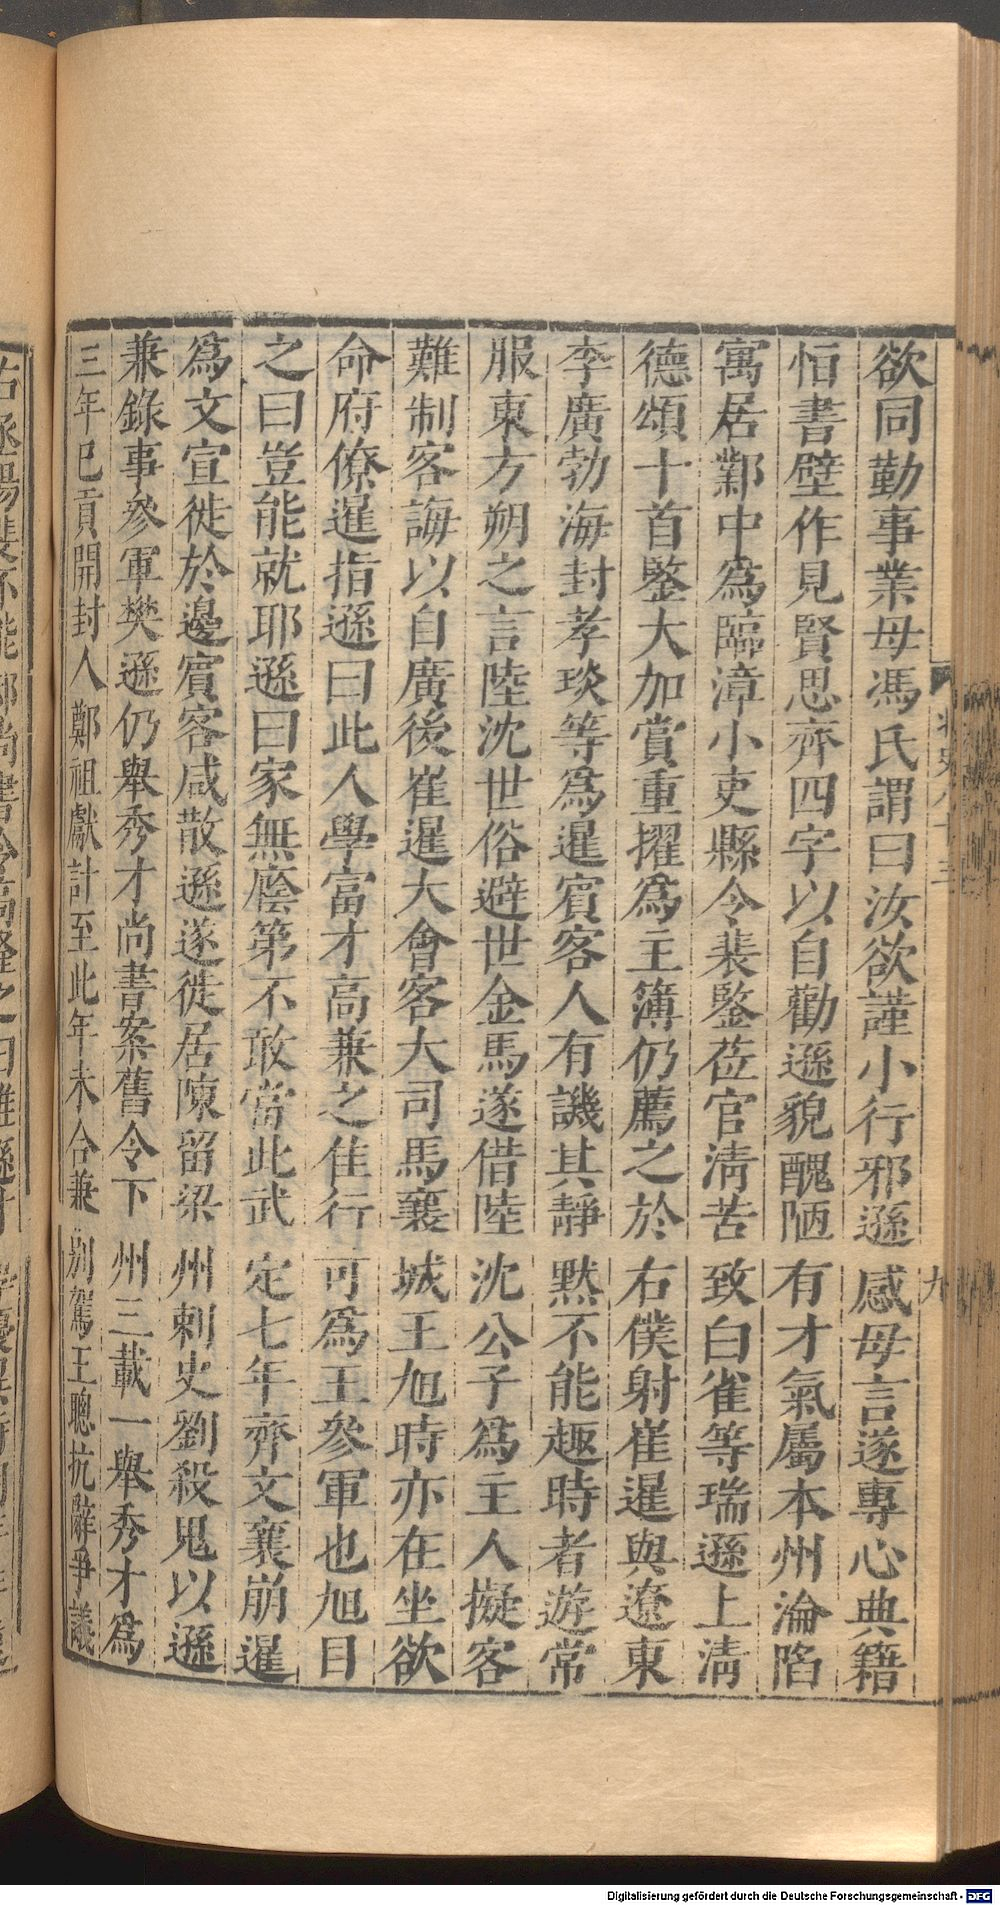 欲同勤事業母馮氏謂曰汝欲謹小行邪遜感母言遂專心典籍
恒書壁作見賢思齊四字以自勸遜貌醜陋有才氣屬本州淪陷
寓居鄴中爲臨漳小吏縣令裴鑒莅官淸苦致白雀等瑞遜上淸
德頌十首鑒大加賞重擢爲主簿仍薦之於右僕射崔暹與遼東
李廣勃海封孝琰等爲暹賓客人有譏其靜默不能趣時者遊常
服東方朔之言陸沈世俗避世金馬遂借陸沈公子爲主人擬客
難制客誨以自廣後崔暹大會客大司馬襄城王旭時亦在坐欲
命府僚暹指遜曰此人學富才高兼之佳行可爲王參軍也旭目
之曰豈能就耶遜曰家無廕第不敢當此武定七年齊文襄崩暹
爲文宣徙於邊賓客咸散遜遂徙居陳留梁州刺史劉殺鬼以遜
兼錄事參軍樊遜仍舉秀才尚書案舊令下州三載一舉秀才爲
三年已貢開封人鄭祖獻計至此年未合兼別駕王聰抗辭爭議
九
Digitalisierung gefördert durch die Deutsche Forschungsgemeinschaft - DFG